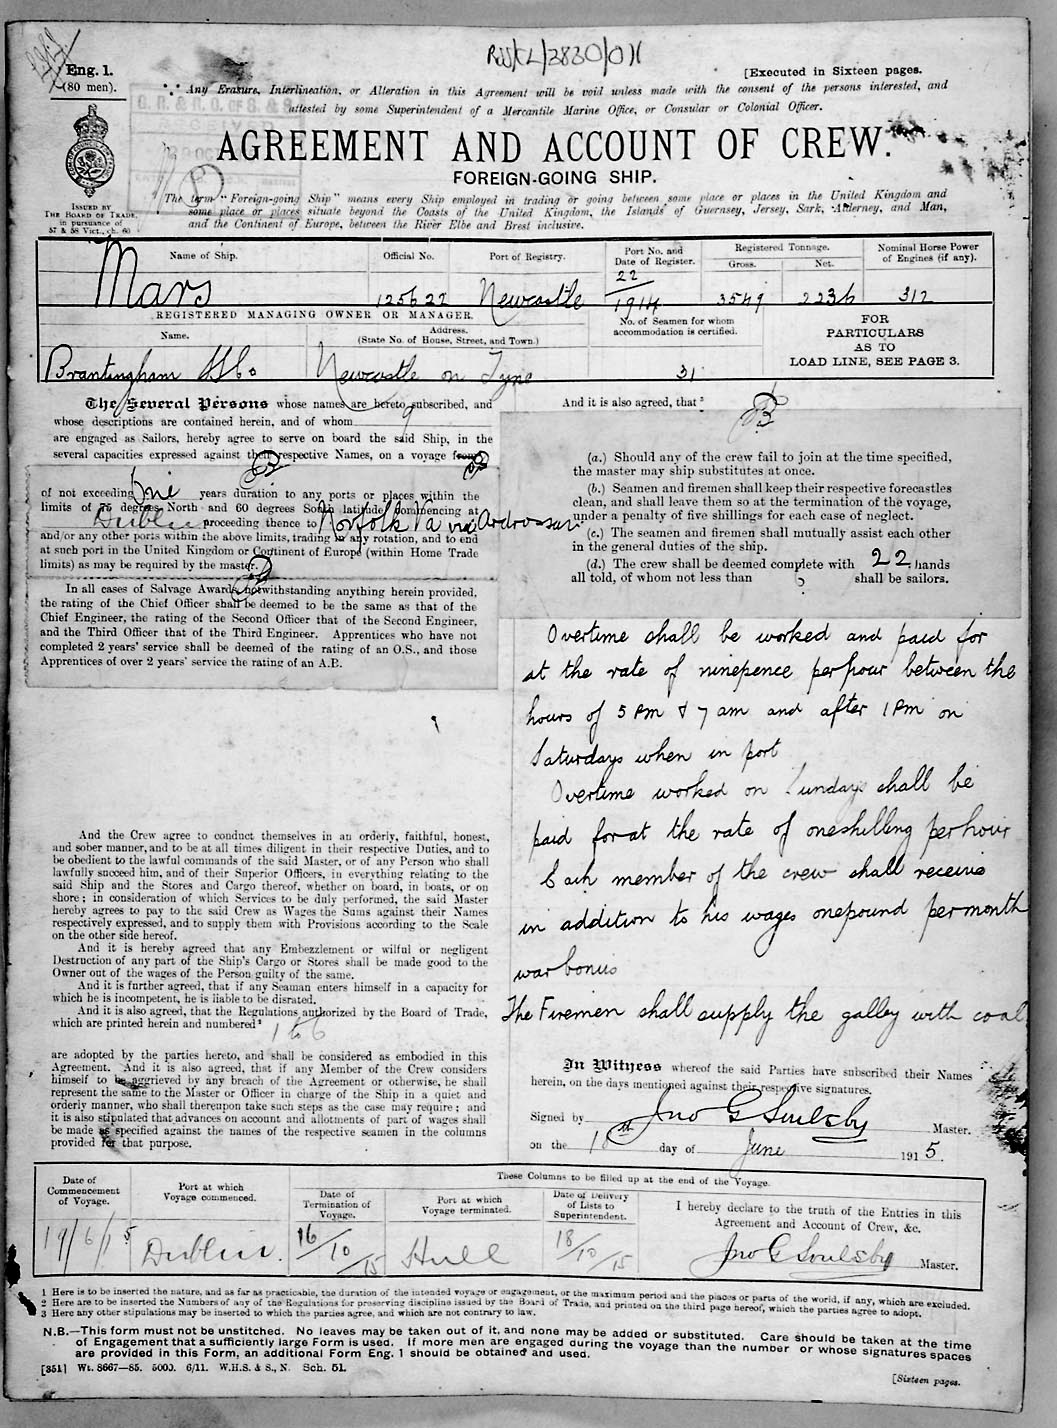 RSS/CL/3830/011
Eng. 1.
(80 men).
[Executed in Sixteen pages.
Any Erasure, Interlineation, or Alteration in this Agreement will be void unless made with the consent of the persons interested, and
attested by some Superintendent of a Mercantile Marine Office, or Consular or Colonial Officer.
AGREEMENT AND ACCOUNT OF CREW.
FOREIGN-GOING SHIP.
ISSUED BY
THE BOARD OF TRADE,
in pursuance of
57 & 58 Vict., ch. 60
The term "Foreign-going Ship" means every Ship employed in trading or going between some place or places in the United Kingdom and
some place or places situate beyond the Coasts of the United Kingdom, the Islands of Guernsey, Jersey, Sark, Alderney, and Man,
and the Continent of Europe, between the River Elbe and Brest inclusive.
Name of Ship.
Official No.
Port of Registry.
Port No. and
Date of Register.
Registered Tonnage.
Gross.
Net.
Nominal Horse Power
of Engines (if any).
Mars
125622
Newcastle
22
1914
3549
2236
312
REGISTERED MANAGING OWNER OR MANAGER.
Name.
Address.
(State No. of House, Street, and Town.)
No. of Seamen for whom
accommodation is certified.
FOR
PARTICULARS
AS TO
LOAD LINE, SEE PAGE 3.
Brantingham SS Co
Newcastle on Tyne
31
The Several Persons whose names are hereto subscribed, and
whose descriptions are contained herein, and of whom
are engaged as Sailors, hereby agree to serve on board the said Ship, in the
several capacities expressed against their respective Names, on a voyage from
of not exceeding One years duration to any ports or places within the
limits of 75 degrees North and 60 degrees South latitude commencing at
Dublin proceeding thence to Norfolk Va via Ardrossan
and/or any other ports within the above limits, trading in any rotation, and to end
at such port in the United Kingdom or Continent of Europe (within Home Trade
limits) as may be required by the master.
In all cases of Salvage Awards, notwithstanding anything herein provided,
the rating of the Chief Officer shall be deemed to be the same as that of the
Chief Engineer, the rating of the Second Officer that of the Second Engineer,
and the Third Officer that of the Third Engineer. Apprentices who have not
completed 2 years' service shall be deemed of the rating of an O.S., and those
Apprentices of over 2 years' service the rating of an A.B.
And the Crew agree to conduct themselves in an orderly, faithful, honest,
and sober manner, and to be at all times diligent in their respective Duties, and to
be obedient to the lawful commands of the said Master, or of any Person who shall
lawfully succeed him, and of their Superior Officers, in everything relating to the
said Ship and the Stores and Cargo thereof, whether on board, in boats, or on
shore; in consideration of which Services to be duly performed, the said Master
hereby agrees to pay to the said Crew as Wages the Sums against their Names
respectively expressed, and to supply them with Provisions according to the Scale
on the other side hereof.
And it is hereby agreed that any Embezzlement or wilful or negligent
Destruction of any part of the Ship's Cargo or Stores shall be made good to the
Owner out of the wages of the Person guilty of the same.
And it is further agreed, that if any Seaman enters himself in a capacity for
which he is incompetent, he is liable to be disrated.
And it is also agreed, that the Regulations authorized by the Board of Trade,
which are printed herein and numbered²
1 to 6
are adopted by the parties hereto, and shall be considered as embodied in this
Agreement. And it is also agreed, that if any Member of the Crew considers
himself to be aggrieved by any breach of the Agreement or otherwise, he shall
represent the same to the Master or Officer in charge of the Ship in a quiet and
orderly manner, who shall thereupon take such steps as the case may require; and
it is also stipulated that advances on account and allotments of part of wages shall
be made as specified against the names of the respective seamen in the columns
provided for that purpose.
And it is also agreed, that ³
(a.) Should any of the crew fail to join at the time specified,
the master may ship substitutes at once.
(b.) Seamen and firemen shall keep their respective forecastles
clean, and shall leave them so at the termination of the voyage,
under a penalty of five shillings for each case of neglect.
(c.) The seamen and firemen shall mutually assist each other
in the general duties of the ship.
(d.) The crew shall be deemed complete with 22 hands
all told, of whom not less than 6 shall be sailors.
Overtime shall be worked and paid for
at the rate of ninepence per hour between the
hours of 5 pm & 7 am and after 1 Pm on
Saturdays when in port
Overtime worked on Sundays shall be
paid for at the rate of one shilling per hour
Each member of the crew shall receive
in addition to his wages one pound per month
war bonus
The Firemen shall supply the galley with coal
In Witness whereof the said Parties have subscribed their Names
herein, on the days mentioned against their respective signatures.
Signed by Jno G Soulsby Master.
on the 18th day of June 1915.
Date of
Commencement
of Voyage.
Port at which
Voyage commenced.
These Columns to be filled up at the end of the Voyage.
Date of
Termination of
Voyage.
Port at which
Voyage terminated.
Date of Delivery
of Lists to
Superintendent.
I hereby declare to the truth of the Entries in this
Agreement and Account of Crew, &c.
19/6/15
Dublin.
16/10/15
Hull
18/10/15
Jno G Soulsby Master.
1 Here is to be inserted the nature, and as far as practicable, the duration of the intended voyage or engagement, or the maximum period and the places or parts of the world, if any, which are excluded.
2 Here are to be inserted the Numbers of any of the Regulations for preserving discipline issued by the Board of Trade, and printed on the third page hereof, which the parties agree to adopt.
3 Here any other stipulations may be inserted to which the parties agree, and which are not contrary to law.
N.B.—This form must not be unstitched. No leaves may be taken out of it, and none may be added or substituted. Care should be taken at the time
of Engagement that a sufficiently large Form is used. If more men are engaged during the voyage than the number or whose signatures spaces
are provided in this Form, an additional Form Eng. 1 should be obtained and used.
[351] Wt. 8667—85. 5000. 6/11. W.H.S. & S., N. Sch. 51.
[Sixteen pages.